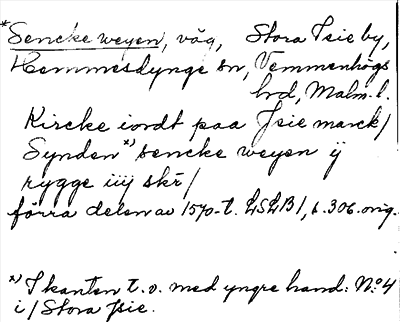 *Sencke weyen, väg, Stora Isie by,
Hemmesdynge sn, Vemmenhögs
hrd, Malm. l.
Kircke iordt paa Jsie marck/
Synden *) sencke weyen ij
rygge iiij skr̄/
förra delen av 1570-t. LSLB1, s. 306. orig.
*) I kanten t.v. med yngre hand: No: 4
i/Stora Jsie.